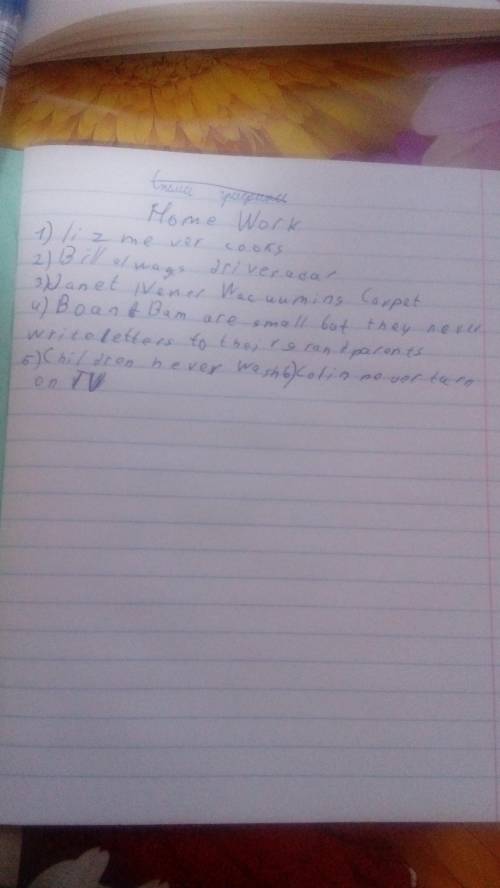 Home Work
1) liz never cooks
2) Bill always drive a car
3) Janet Never Wacuuming Carpet
4) Bo and Bam are small but they never
write letters to their grandparents
5) Children never wash 6) Colin never turn
on TV